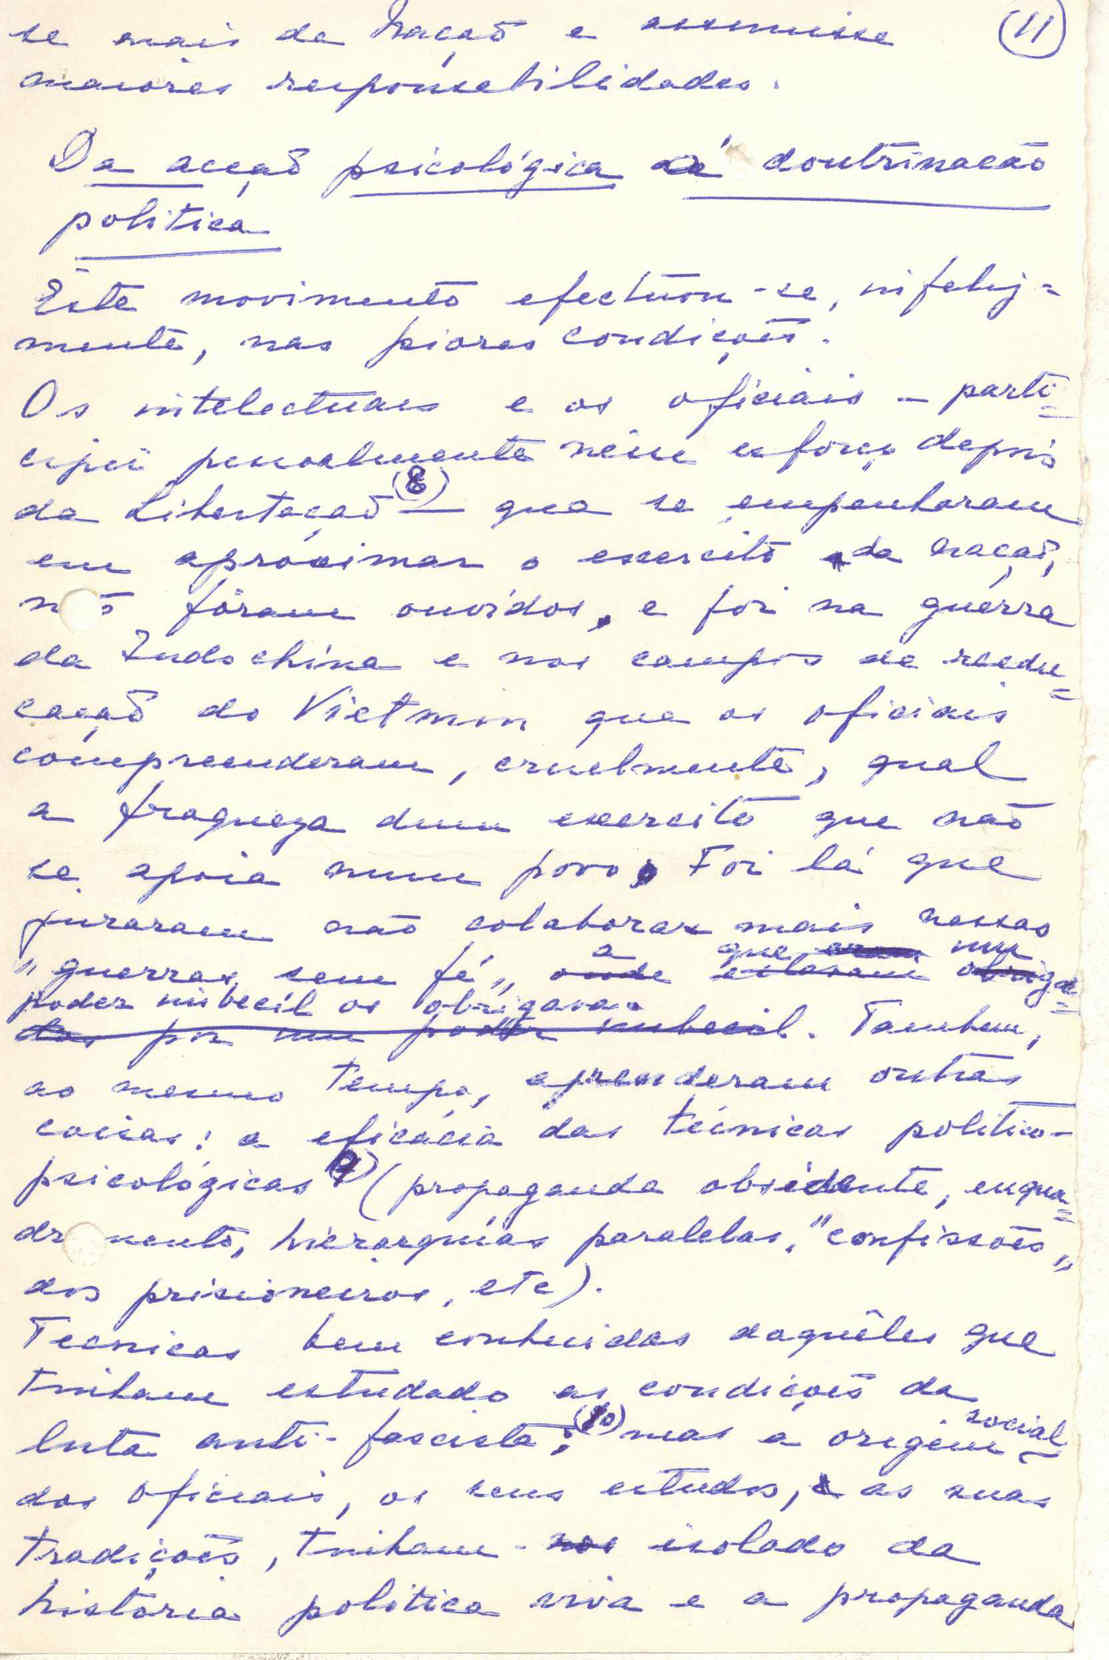 se mais da Nação e assumisse (11)
maiores responsabilidades.
Da acção psicológica à doutrinação
politica
Este movimento efectuou-se, infeliz=
mente, nas piores condições.
Os intelectuais e os oficiais — parti=
cipei pessoalmente nêsse esforço depois
da Libertação (8) — que se empenharam
em apróximar o exercito da Nação,
não fôram ouvidos, e foi na guerra
da Indochina e nos campos de reedu=
cação do Vietmin que os oficiais
compreenderam, cruelmente, qual
a fraqueza dum exercito que não
se apoia num povo. Foi lá que
juraram não colaborar mais nessas
"guerras sem fé" a que um
poder imbecil os obrigava. Tambem,
ao mesmo tempo, aprenderam outras
coisas: a eficácia das técnicas politico-
psicológicas (9) (propaganda obsidente, enqua=
dramento, hierarquias paralelas, "confissões"
dos prisioneiros, etc).
Tecnicas bem conhecidas daquêles que
tinham estudado as condições da
luta anti-fascista; (10) mas a origem social
dos oficiais, os seus estudos, as suas
tradições, tinham-nos isolado da
história politica viva e a propaganda